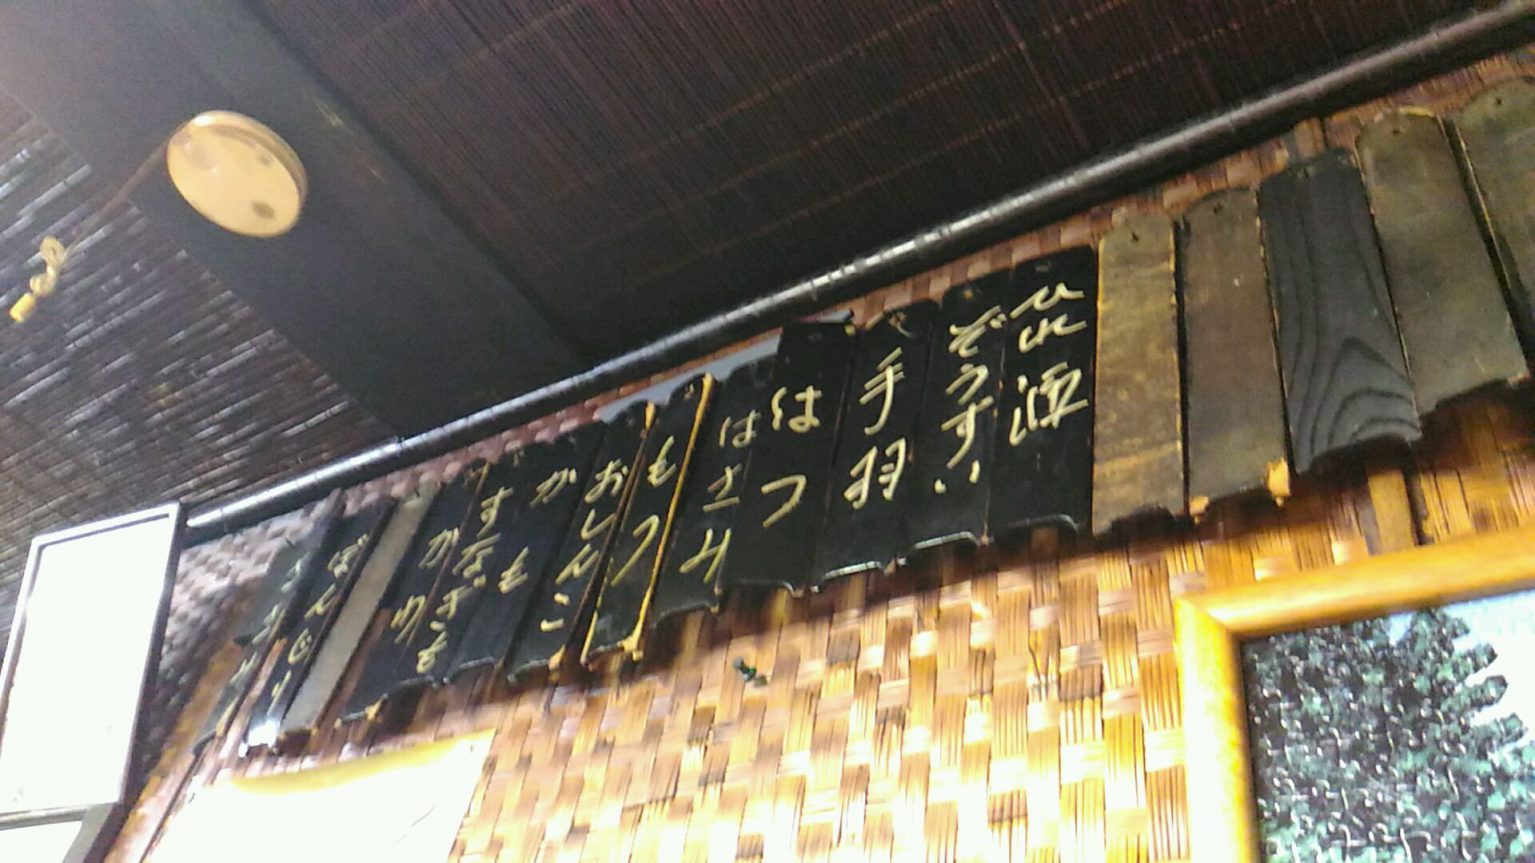 ひれ酒
ぞうすい
手羽
はつ
はさみ
もつ
おしんこ
かも
すなぎも
かわ
ぼんじり
ささみ